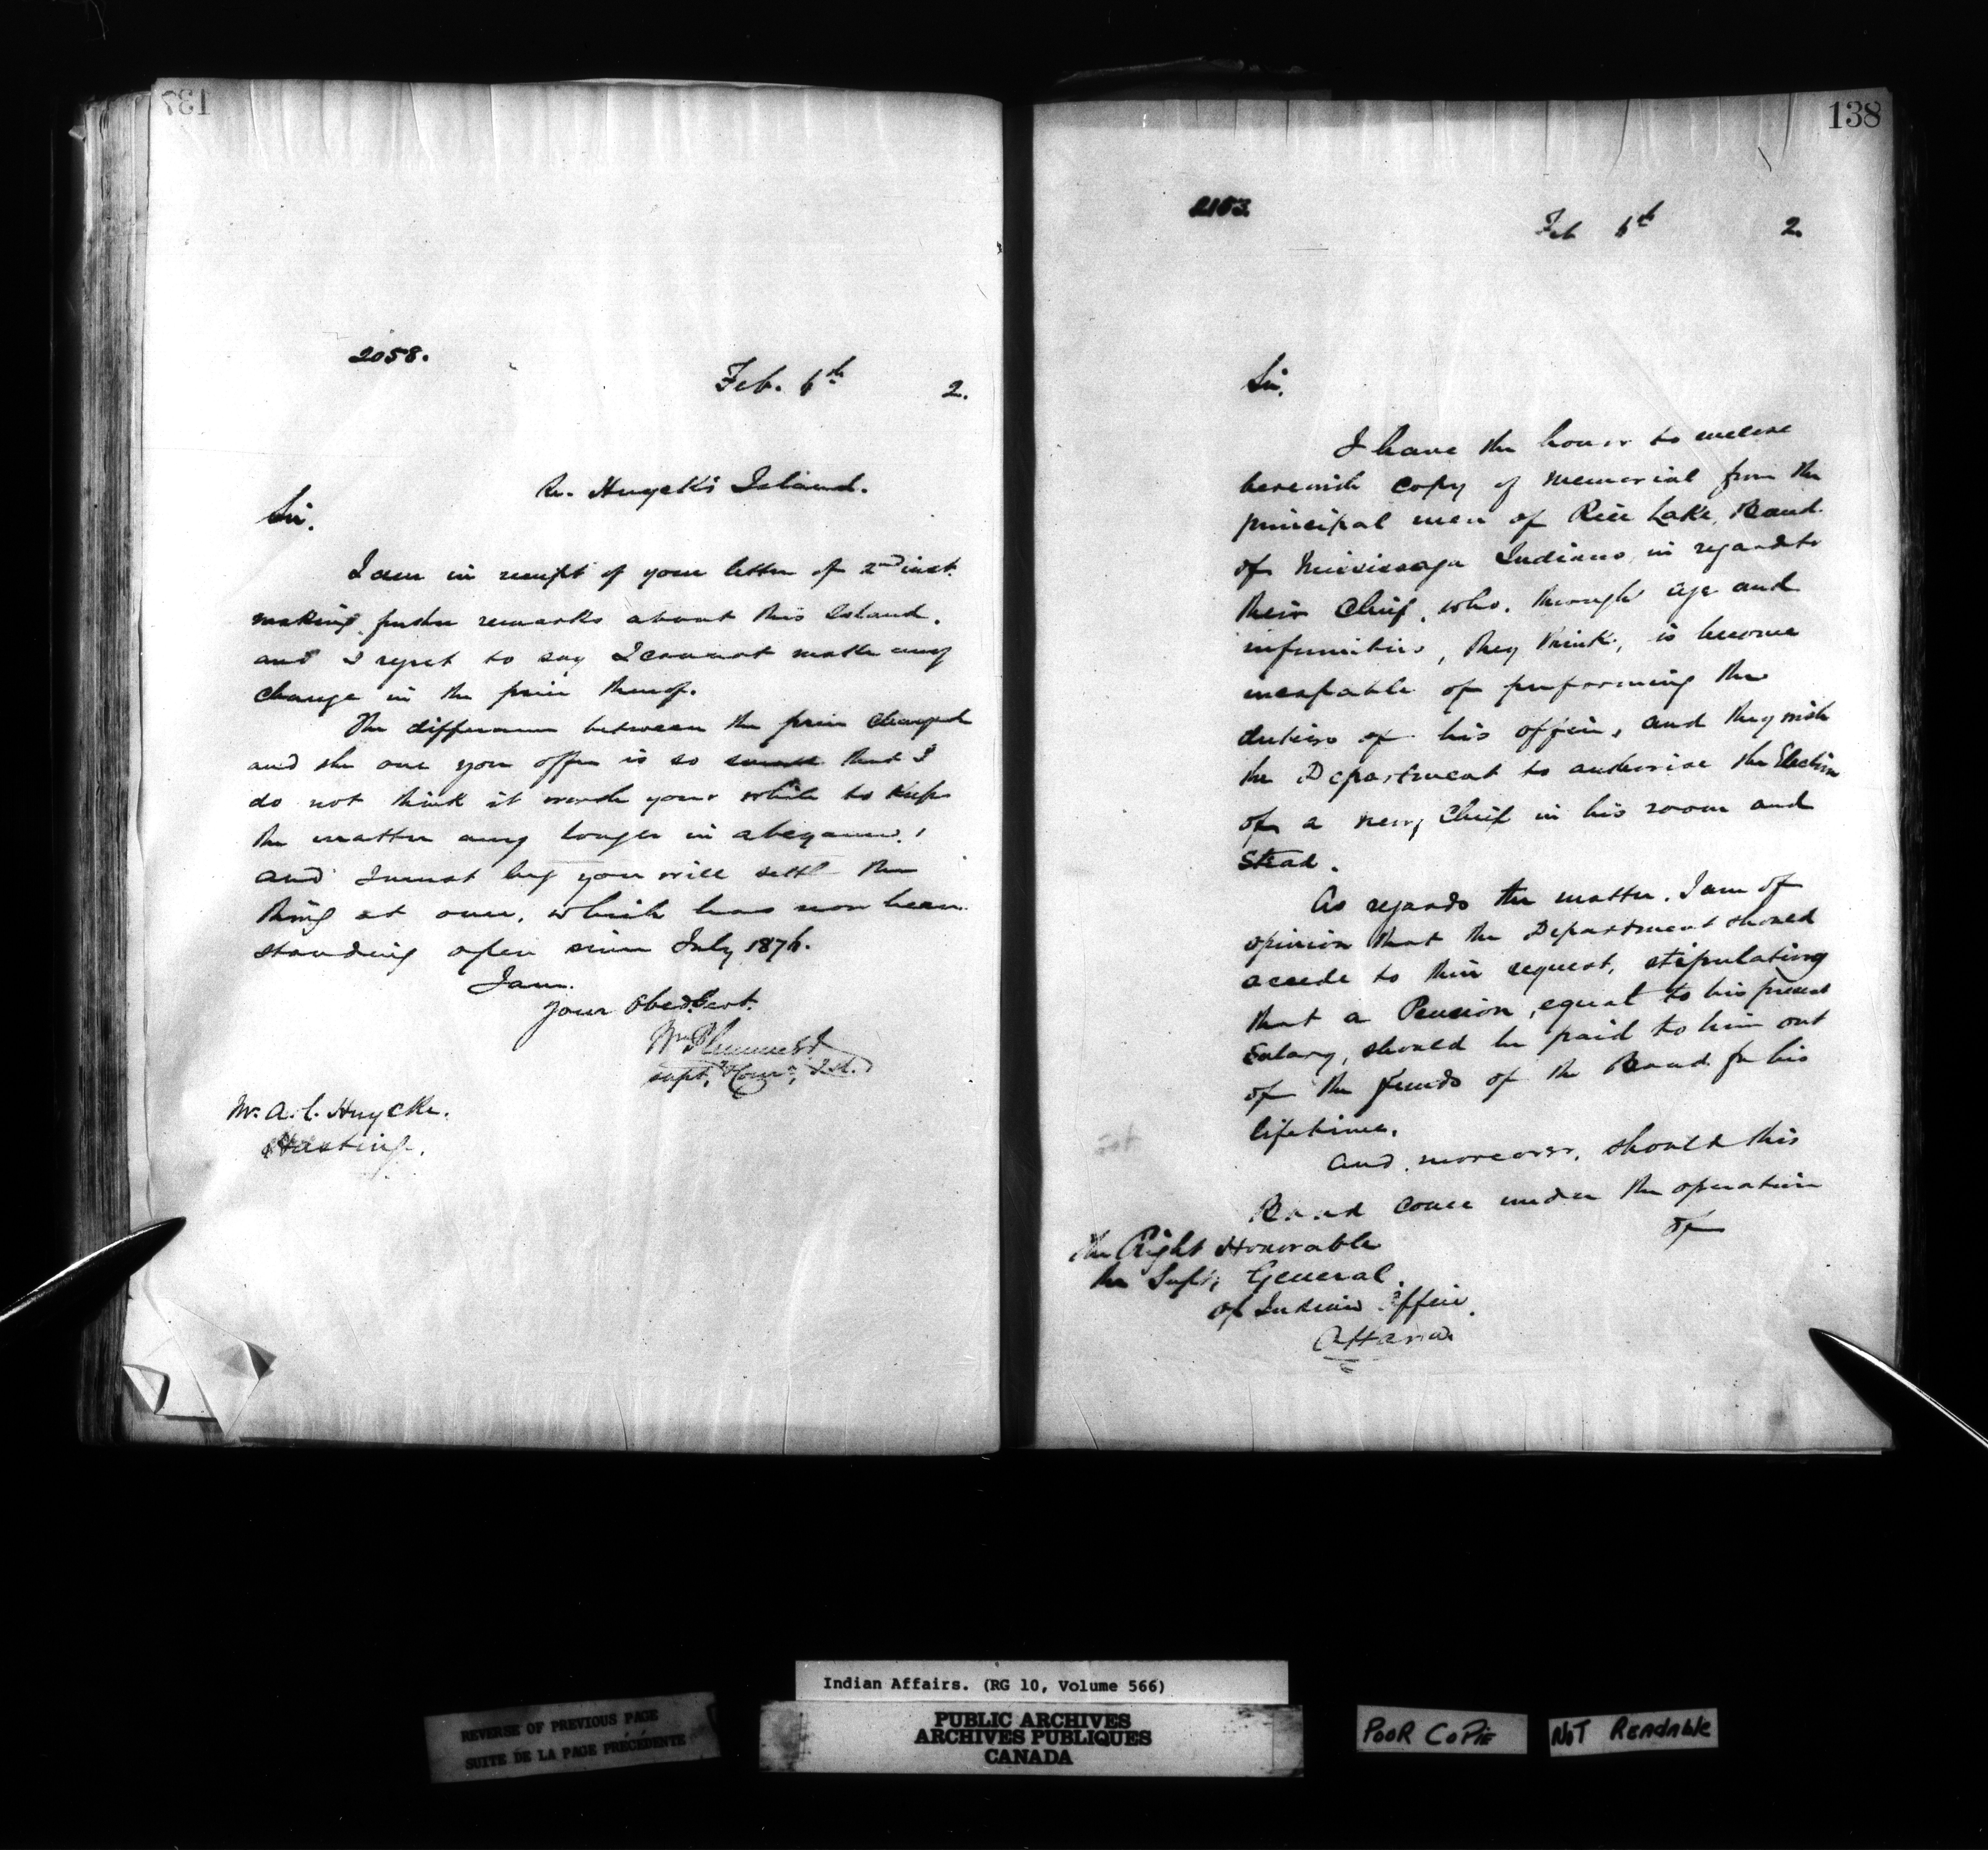 137
2058.
Feb. 6th 2.
Re. Huyck's Island.
Sir.
I am in receipt of your letter of 2nd inst.
making further remarks about this Island.
and I regret to say I cannot make any
change in the price thereof.
The difference between the price charged
and the one you offer is so small that I
do not think it worth your while to keep
the matter any longer in abeyance.
and I must beg you will settle this
thing at once, which has now been
standing open since July 1876.
I am.
Your Obed. Sert.
Wm Plummer
Supt, & Comr,
Mr. A. C. Huycke.
Hastings.
138
2153.
Feb 6th 2.
Sir.
I have the honor to enclose
herewith copy of memorial from the
principal men of Rice Lake, Band
of Mississaga Indians, in regard to
their Chief, who, through age and
infirmities, they think, is become
incapable of performing the
duties of his office, and they wish
the Department to authorise the Election
of a new Chief in his room and
Stead.
As regards the matter. I am of
opinion that the Department should
accede to their request, stipulating
that a Pension, equal to his present
Salary, should be paid to him out
of the funds of the Band for his
lifetime.
and, moreover, should this
Band come under the operation
of
The Right Honorable
the Supt, General.
of Indian Affairs.
Ottawa
Indian Affairs. (RG 10, Volume 566)
REVERSE OF PREVIOUS PAGE
SUITE DE LA PAGE PRÉCÉDENTE
PUBLIC ARCHIVES
ARCHIVES PUBLIQUES
CANADA
POOR COPIE
NOT READABLE